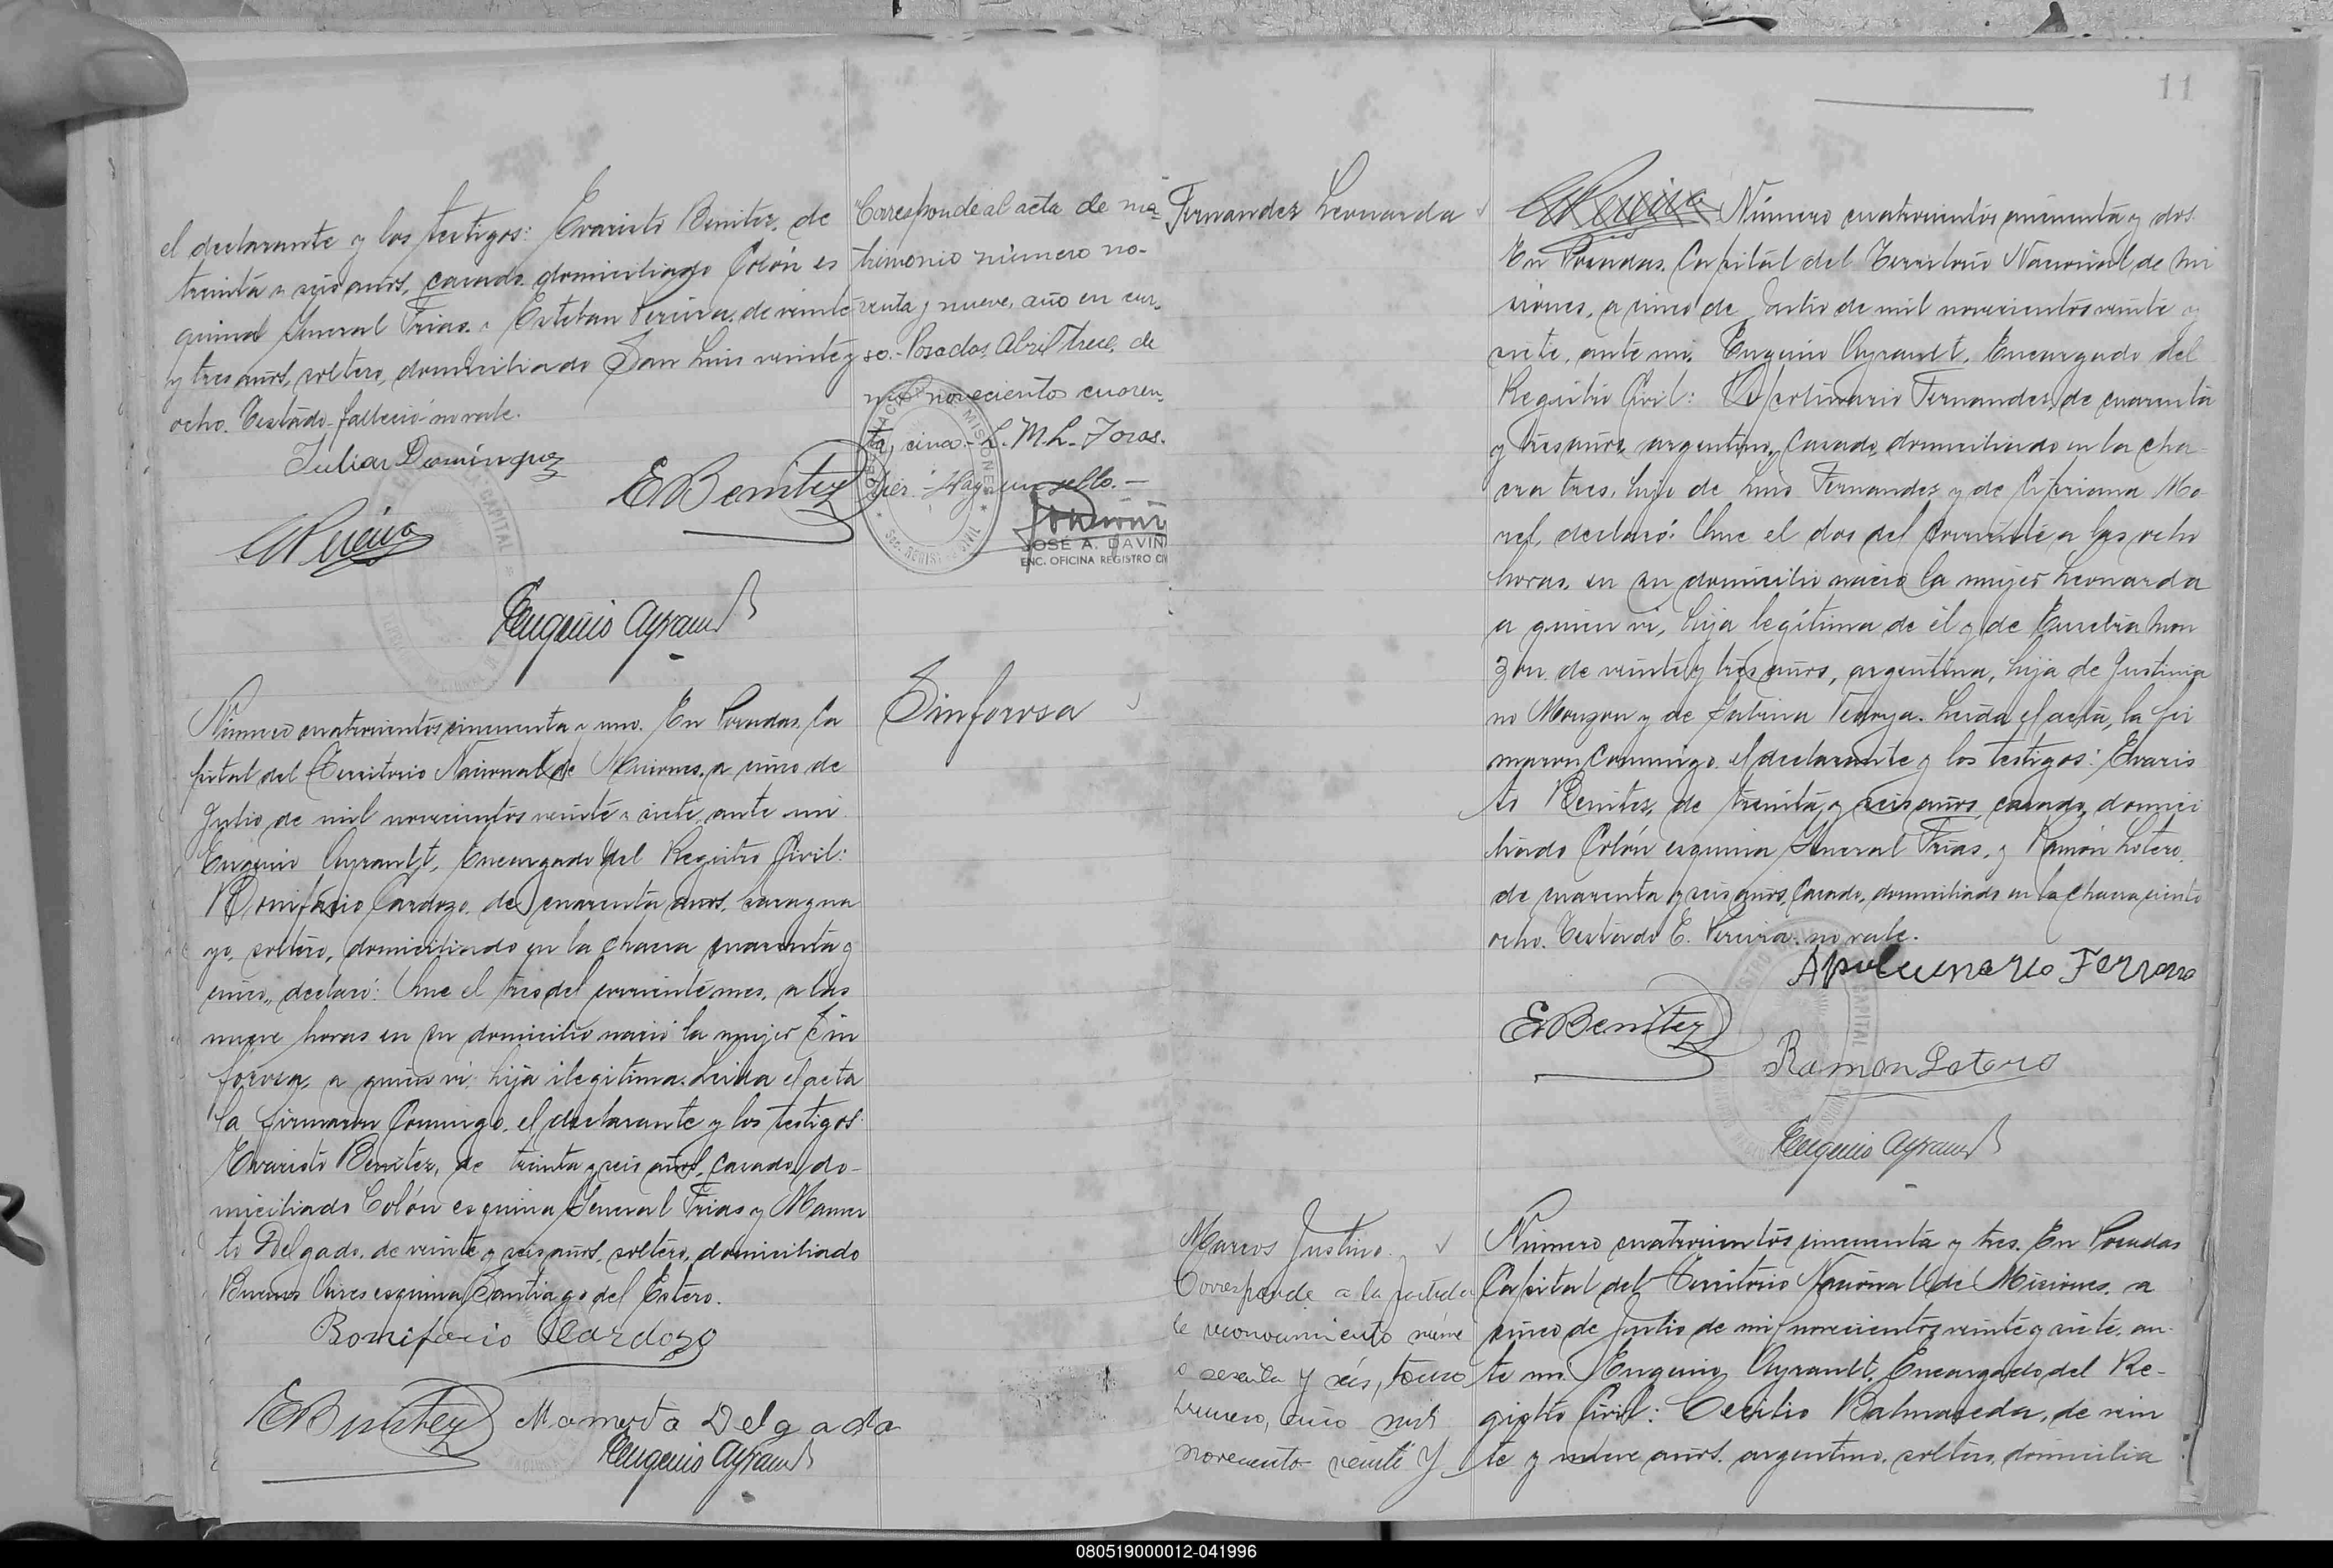 el declarante y los testigos: Evaristo Benitez, de
treinta y seis años, casado, domiciliado Colón es
quina General Frias y Esteban Pereira, de veinte
y tres años, soltero, domiciliado San Luis veinte y
ocho. Testado-falleció-no vale.
Julian Dominguez
E Benitez
E Pereira
Eugenio Ayrault
Corresponde al acta de ma-
trimonio número no-
venta y nueve, año en cur-
so.- Posadas, Abril trece, de
mil novecientos cuaren-
ta y cinco.- L. M. L. Joras.
Hay un sello.-
JOSÉ A. DAVIÑ
ENC. OFICINA REGISTRO CIV
Número cuatrocientos cincuenta y uno. En Posadas, Ca
pital del Territorio Nacional de Misiones, a cinco de
Julio de mil novecientos veinte y siete, ante mi
Eugenio Ayrault, Encargado del Registro Civil:
Bonifacio Cardozo, de cuarenta años, paragua
yo, soltero, domiciliado en la chacra cuarenta y
cinco, declaró: Que el tres del corriente mes, a las
nueve horas en su domicilio nació la mujer Sin
forosa, a quien vi, hija ilegitima. Leida el acta
la firmaron conmigo, el declarante y los testigos:
Evaristo Benitez, de treinta y seis años, casado, do-
miciliado Colón esquina General Frias y Mamer
to Delgado, de veinte y seis años, soltero, domiciliado
Buenos Aires esquina Santiago del Estero.
Bonifacio Cardozo
E Benitez
Mamerto Delgado
Eugenio Ayrault
Sinforosa
11
Fernandez Leonarda
E Pereira Número cuatrocientos cincuenta y dos.
En Posadas, Capital del Territorio Nacional de Mi
siones, a cinco de Julio de mil novecientos veinte y
siete, ante mi, Eugenio Ayrault, Encargado del
Registro Civil: Apolinario Fernandez, de cuarenta
y tres años, argentino, casado, domiciliado en la cha-
cra tres, hijo de Luis Fernandez y de Cipriana Mo-
rel, declaró: Que el dos del corriente a las ocho
horas, en su domicilio nació la mujer Leonarda
a quien vi, hija legítima de él y de Eusebia Mon
zon de veinte y tres años, argentina, hija de Justinia
no Monzon y de Sabina Vedoya. Leida el acta, la fir
maron conmigo, el declarante y los testigos: Evaris
to Benitez, de treinta y seis años, casado, domici
liado Colón esquina General Frias, y Ramón Lotero,
de cuarenta y seis años, casado, domiciliado en la chacra ciento
ocho. Testado E. Pereira: no vale.
E Benitez
Ramon Lotero
Eugenio Ayrault
Marcos Justino.
Corresponde a la partida
de reconocimiento núme
o sesenta y seis, tomo
primero, año mil
novecientos veinte y
Número cuatrocientos cincuenta y tres. En Posadas
Capital del Territorio Nacional de Misiones, a
cinco de Julio de mil novecientos veinte y siete, an-
te mi Eugenio Ayrault, Encargado del Re-
gistro Civil: Cecilio Balmaceda, de vein
te y nueve años, argentino, soltero, domicilia
080519000012-041996